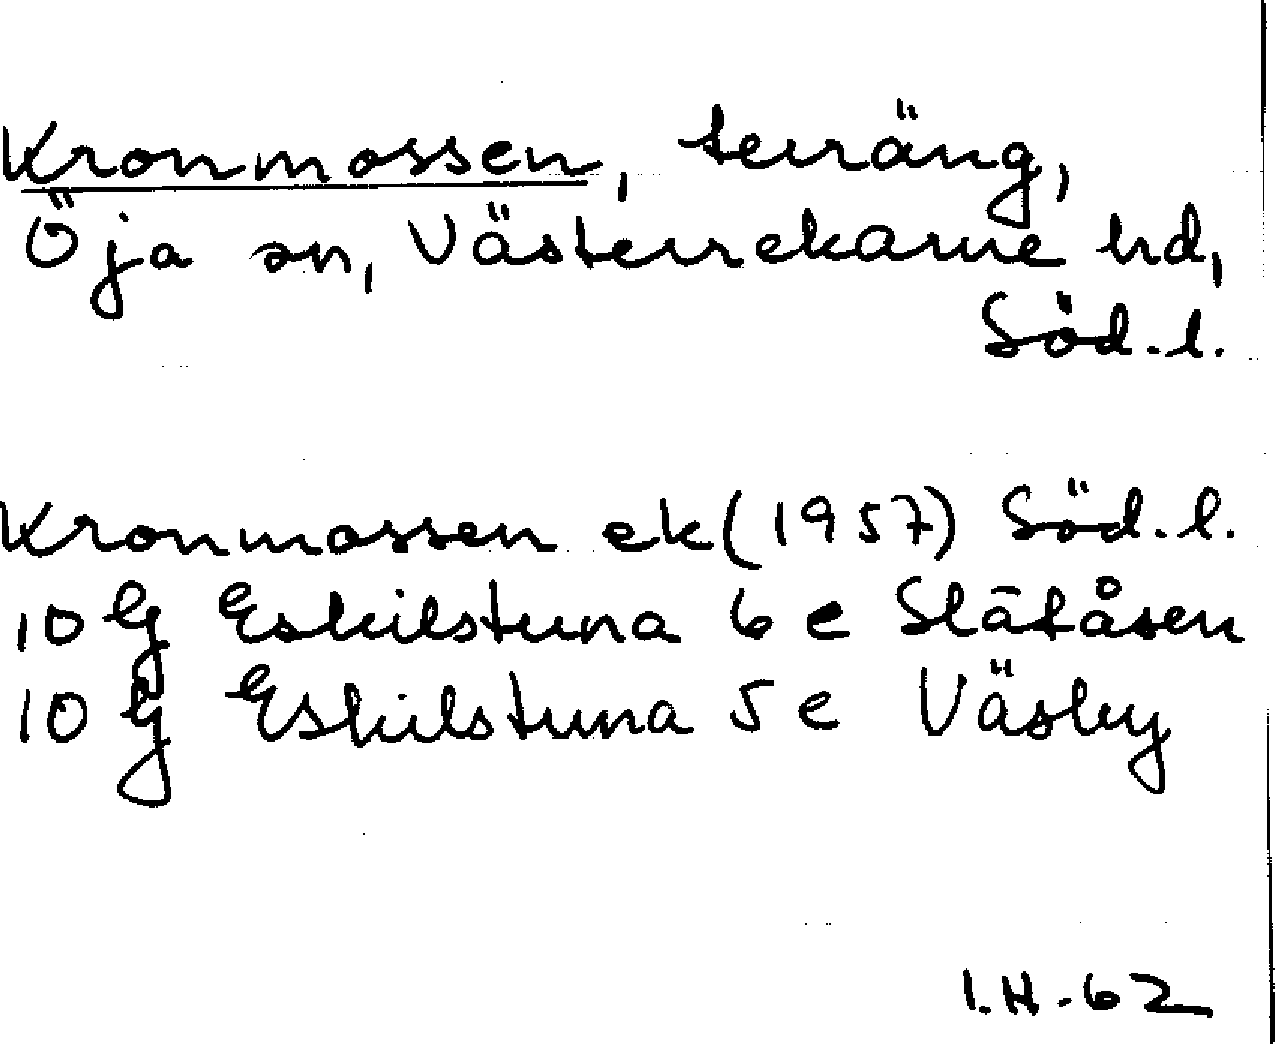 Kronmossen, terräng,
Öja sn, Västerrekarne hd,
Söd.l.
Kronmossen ek (1957) Söd.l.
10 G Eskilstuna 6 e Slätåsen
10 G Eskilstuna 5 e Väsby
I.H.-62